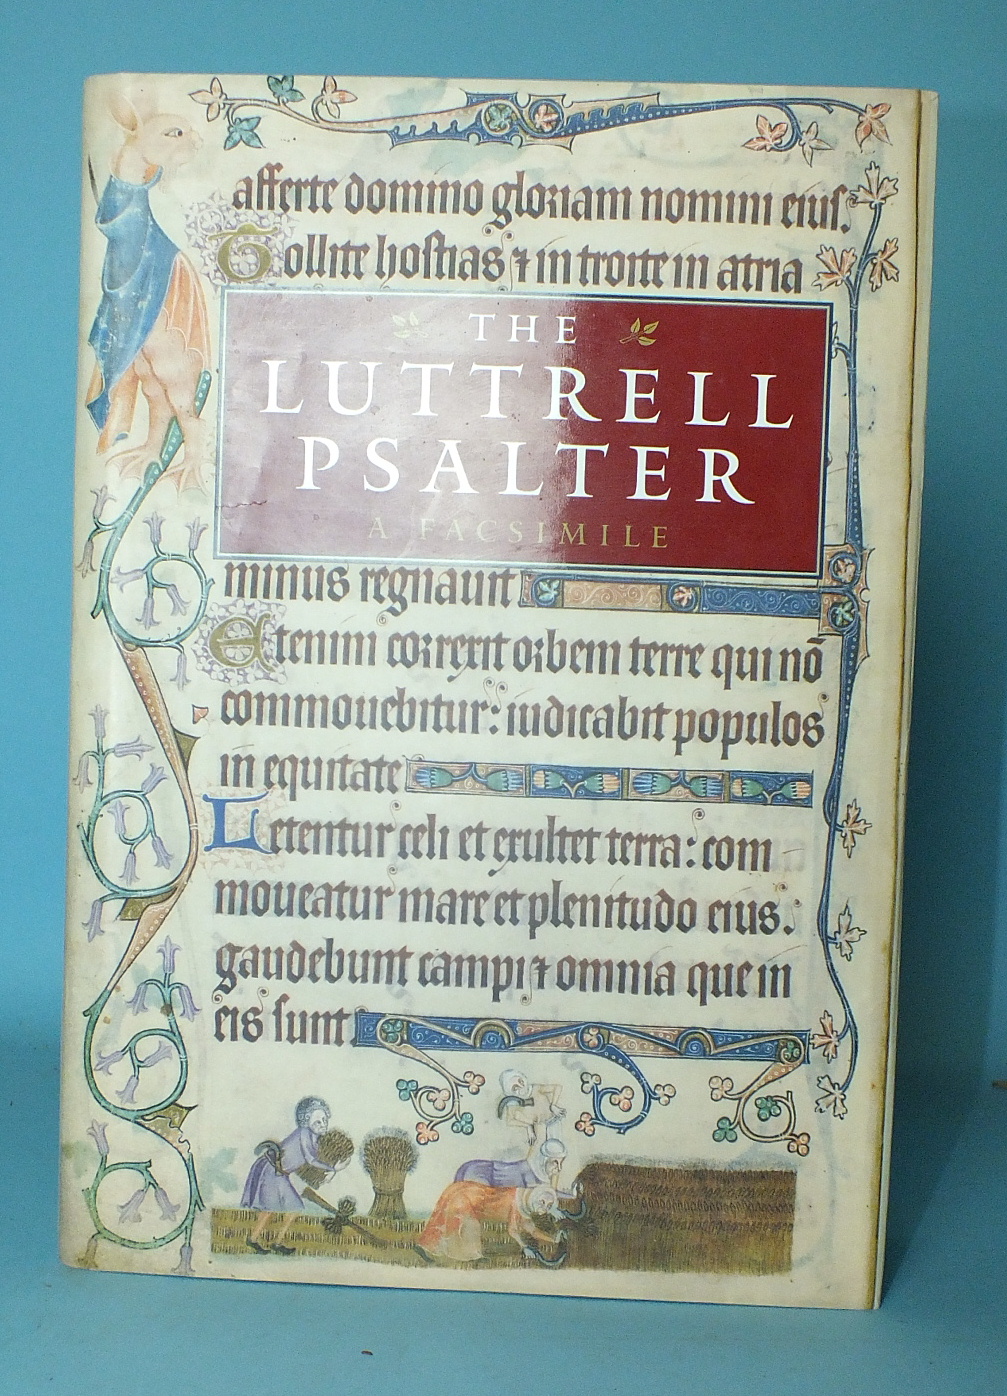 afferte domino gloriam nomini eius.
Tollite hostias ⁊ introite in atria
THE
LUTTRELL
PSALTER
A FACSIMILE
minus regnauit
Etenim correxit orbem terre qui nō
commouebitur: iudicabit populos
in equitate
Letentur celi et exultet terra: com
moueatur mare et plenitudo eius.
gaudebunt campi ⁊ omnia que in
eis sunt